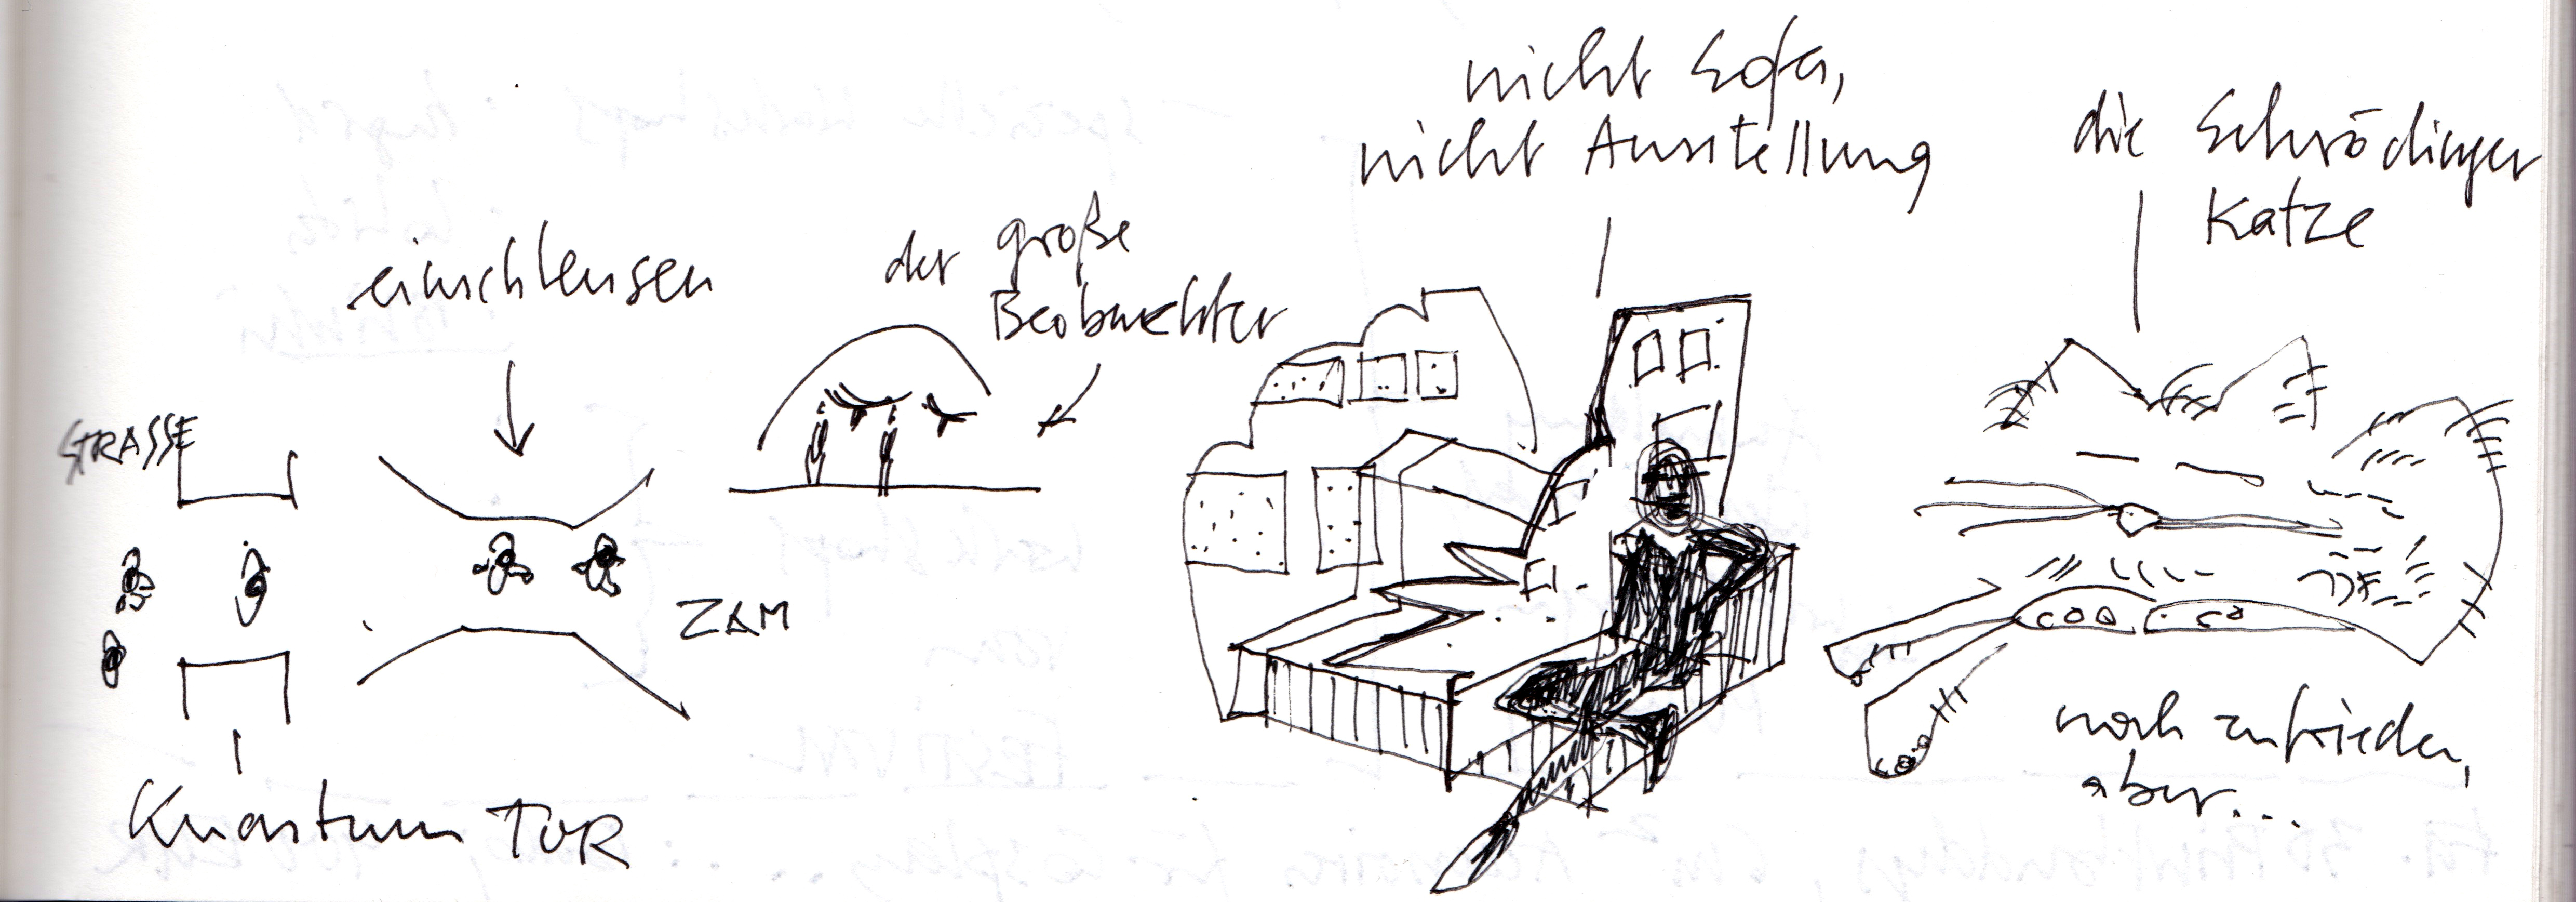 STRASSE
einschleusen
Kuantum TOR
ZAM
der große
Beobachter
nicht Sofa,
nicht Ausstellung
die Schrödinger
Katze
noch zufrieden,
aber...